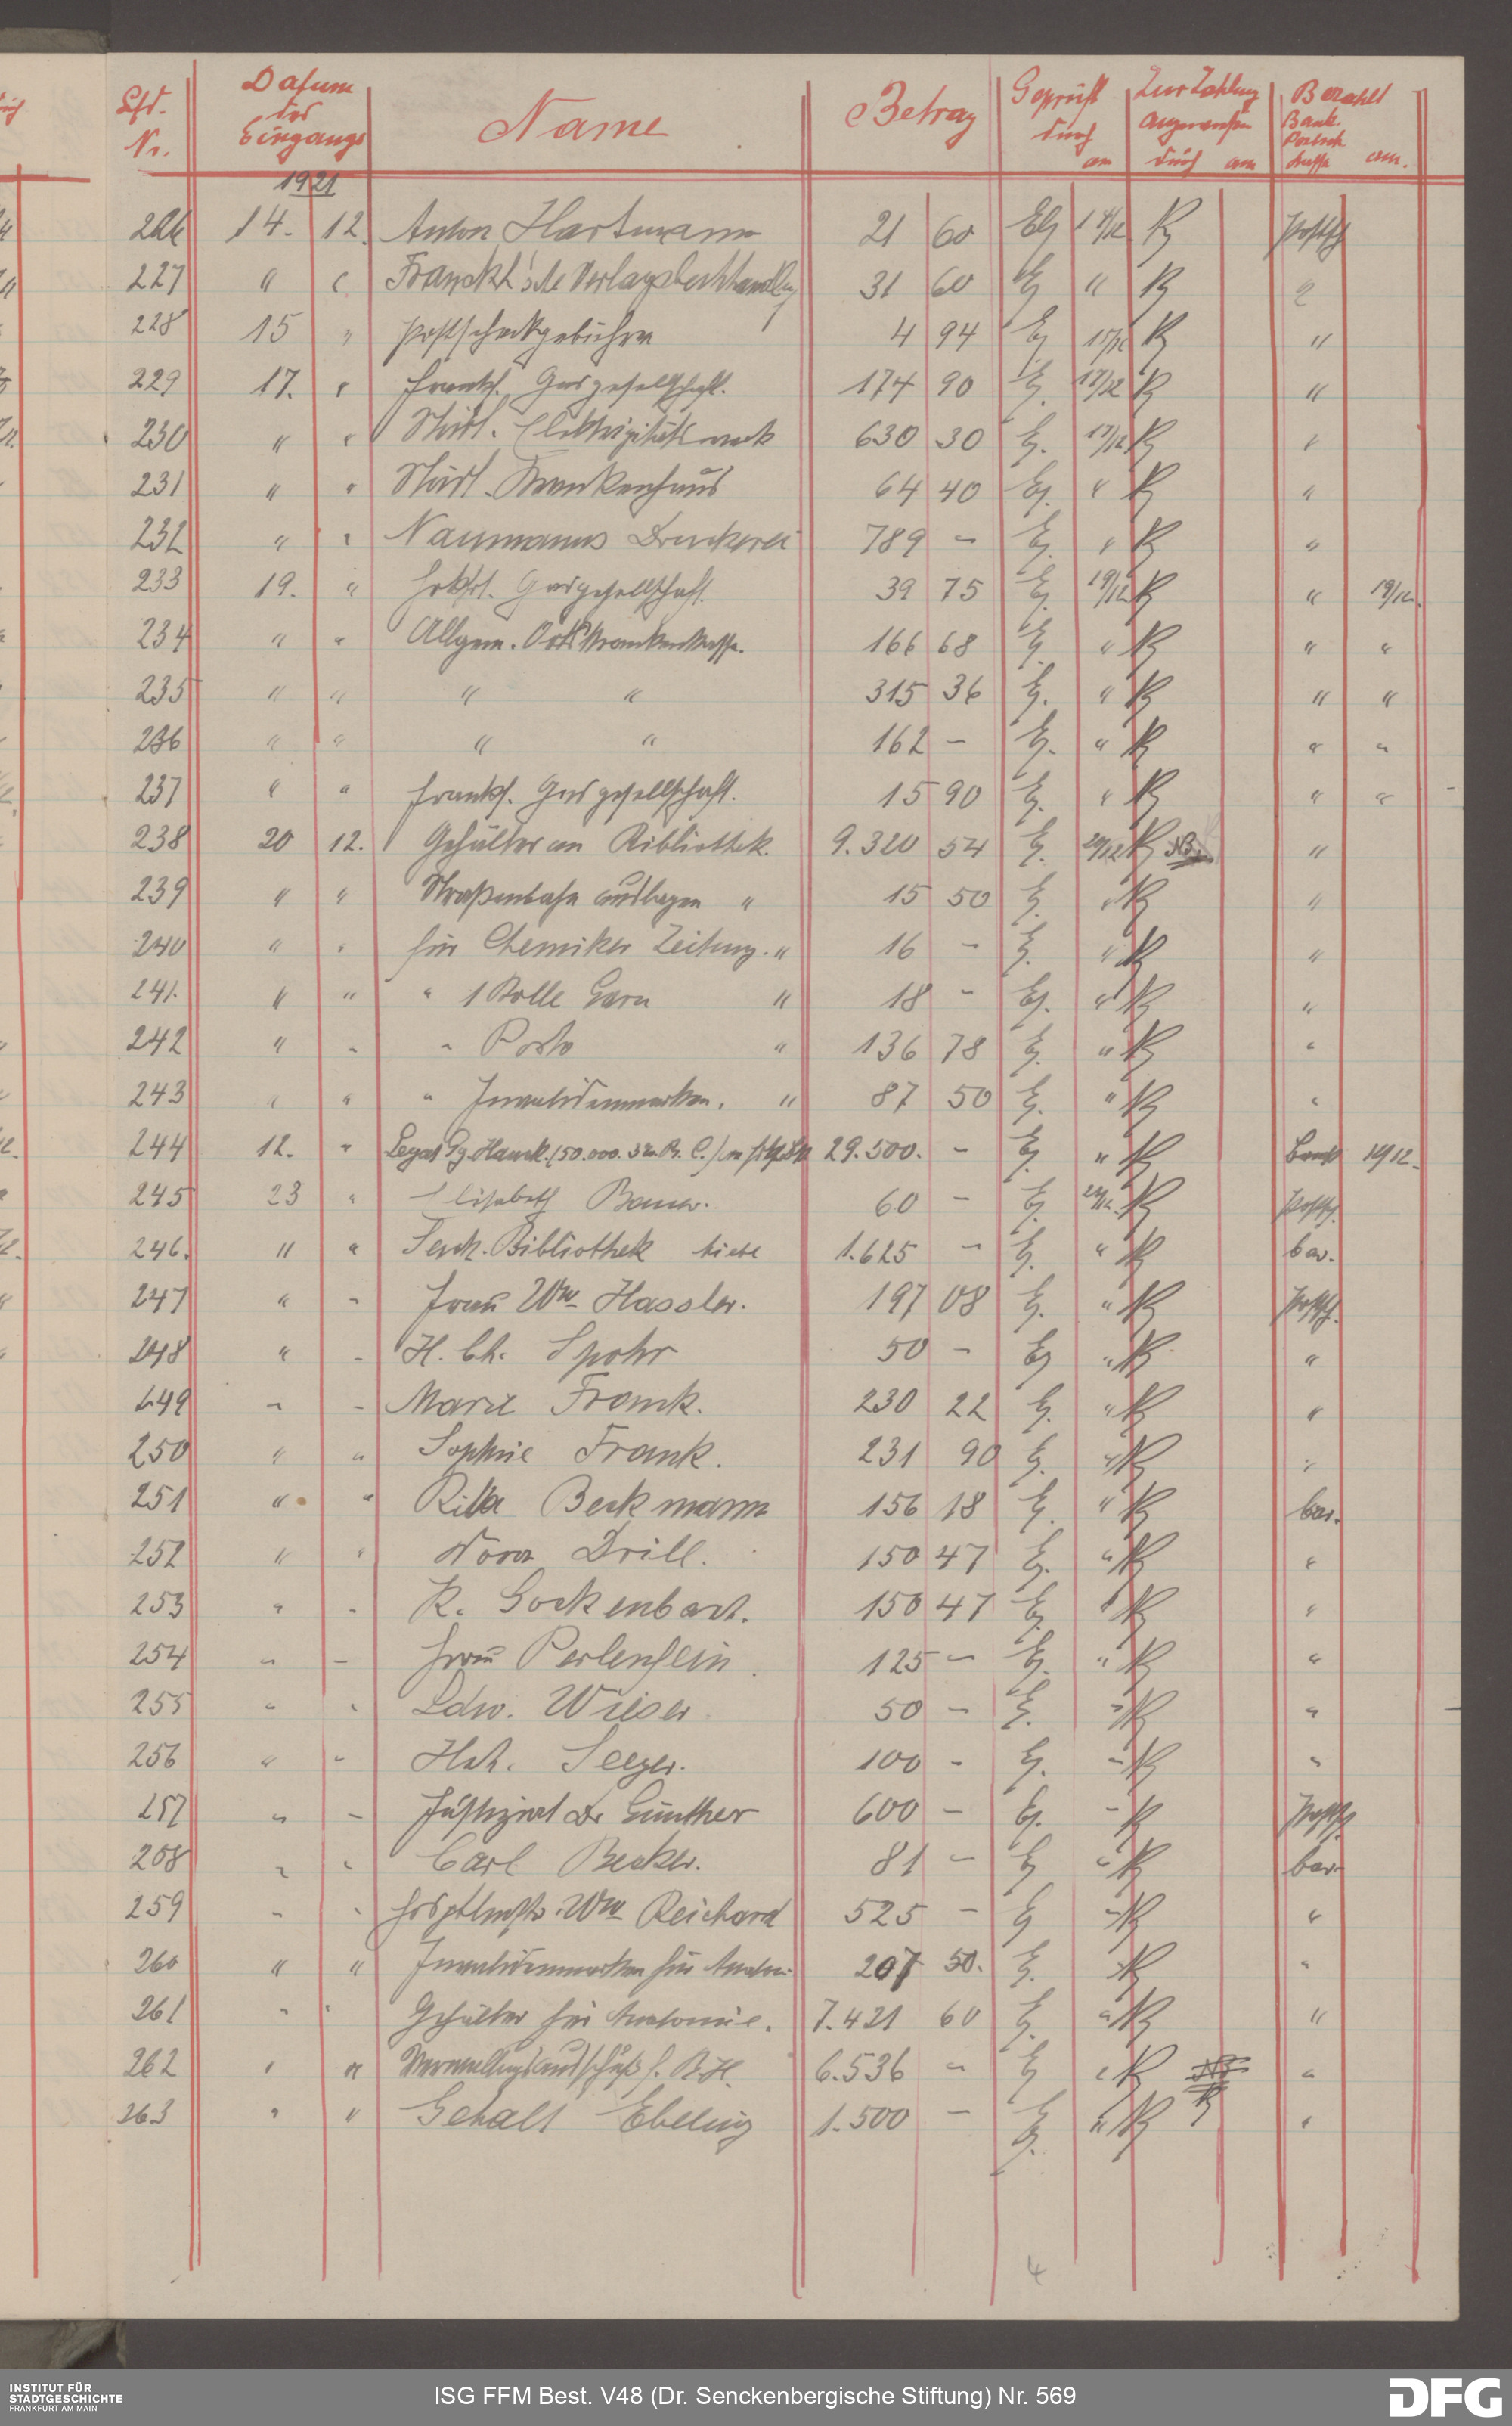 Lfd. Nr. Datum des Eingangs Name Betrag Geprüft durch am Zur Zahlung angewiesen durch am Bezahlt Bank Postsch Kasse am.
1921
226 14. 12. Anton Hartmann 21 60 Eg 14/12 Postsch
227 " " Franckh'sche Verlagsbuchhandlg 31 60 Eg " "
228 15 " Postscheckgebühren 4 94 Eg 15/12 "
229 17. " Frankf. Gasgesellschaft. 174 90 Eg. 17/12 "
230 " " Städt. Elektrizitätswerk 630 30 Eg. 17/12 "
231 " " Städt. Krankenhaus 64 40 Eg. " "
232 " " Naumanns Druckerei 789 — Eg. " "
233 19. " Frkfrt. Gasgesellschaft. 39 75 Eg. 19/12 " 19/12.
234 " " Allgem. Ortskrankenkasse. 166 68 Eg. " " "
235 " " " " 315 36 Eg. " " "
236 " " " " 162 — Eg. " " "
237 " " Frankf. Gasgesellschaft. 15 90 Eg. " " "
238 20 12. Gehälter an Bibliothek. 9.320 54 Eg. 20/12 "
239 " " Straßenbahn auslagen " 15 50 Eg. " "
240 " " für Chemiker Zeitung. " 16 — Eg. " "
241. " " " 1 Rolle Garn " 18 — Eg. " "
242 " " " Porto " 136 78 Eg. " "
243 " " " Invalidenmarken. " 87 50 Eg. " "
244 12. " Legat Gg. Hauck. (50.000. 29.500. — Eg. " Bank 19 12.
245 23 " Elisabeth Bauer. 60 — Eg. Postsch.
246. " " Senck. Bibliothek Miete 1.625 — Eg. " bar.
247 " " Frau Wwe Hassler. 197 08 Eg. " Postsch.
248 " " H. Ch. Spohr 50 — Eg " "
249 " " Marie Franck. 230 22 Eg. " "
250 " " Sophie Frank. 231 90 Eg. " "
251 " " Rika Beckmann 156 18 Eg. " bar.
252 " " Nora Drill. 150 47 Eg. " "
253 " " K. Gockenbach. 150 47 Eg. " "
254 " " Frau Perlenfein 125 — Eg. " "
255 " " Ldw. Wieser 50 — Eg. " "
256 " " Hch. Seeger. 100 — Eg. " "
257 " " Justizrat Dr Günther 600 — Eg. " Postsch
258 " " Carl Becker. 81 — Eg " bar
259 " " Wwe Reichard 525 — Eg " "
260 " " Invalidenmarken für Anatom. 207 50. Eg. " "
261 " " Gehälter für Anatomie. 7.421 60 Eg. " "
262 " " Verwaltungsausschuß f. B.H. 6.536 — Eg " "
263 " " Gehalt Ebeling 1.500 — Eg. " "
4
INSTITUT FÜR
STADTGESCHICHTE
FRANKFURT AM MAIN
ISG FFM Best. V48 (Dr. Senckenbergische Stiftung) Nr. 569
DFG